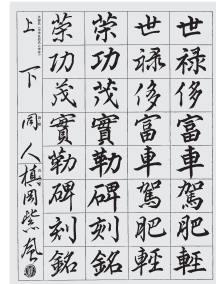 世祿侈富車駕肥輕
世祿侈富車駕肥軽
榮功茂實勒碑刻銘
榮功茂實勒碑刻銘
上下同人 植岡紫風